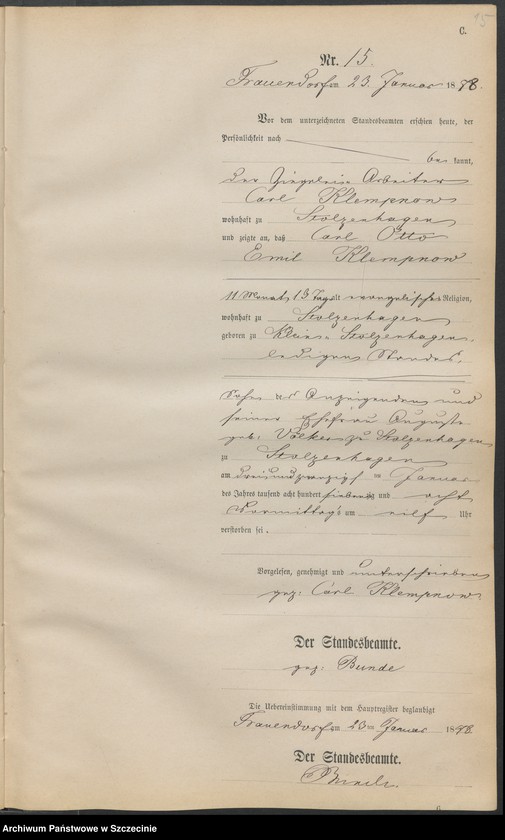 15
C.
Nr. 15.
Frauendorf am 23. Januar 1878.
Vor dem unterzeichneten Standesbeamten erschien heute, der
Persönlichkeit nach
be kannt,
der Ziegelei-Arbeiter
Carl Klempnow
wohnhaft zu Stolzenhagen
und zeigte an, daß Carl Otto
Emil Klempnow
11 Monat, 13 Tage alt evangelischer Religion,
wohnhaft zu Stolzenhagen
geboren zu Klein-Stolzenhagen,
ledigen Standes,
Sohn des Anzeigenden und
seiner Ehefrau Auguste
geb. Völker zu Stolzenhagen
zu Stolzenhagen
am dreiundzwanzigsten Januar
des Jahres tausend acht hundert siebenzig und acht
Vormittags um Uhr
verstorben sei.
Vorgelesen, genehmigt und unterschrieben
gez. Carl Klempnow.
Der Standesbeamte.
gez. Bunde
Die Uebereinstimmung mit dem Hauptregister beglaubigt
Frauendorf am 23ten Januar 1878.
Der Standesbeamte.
Bunde.
6
Archiwum Państwowe w Szczecinie